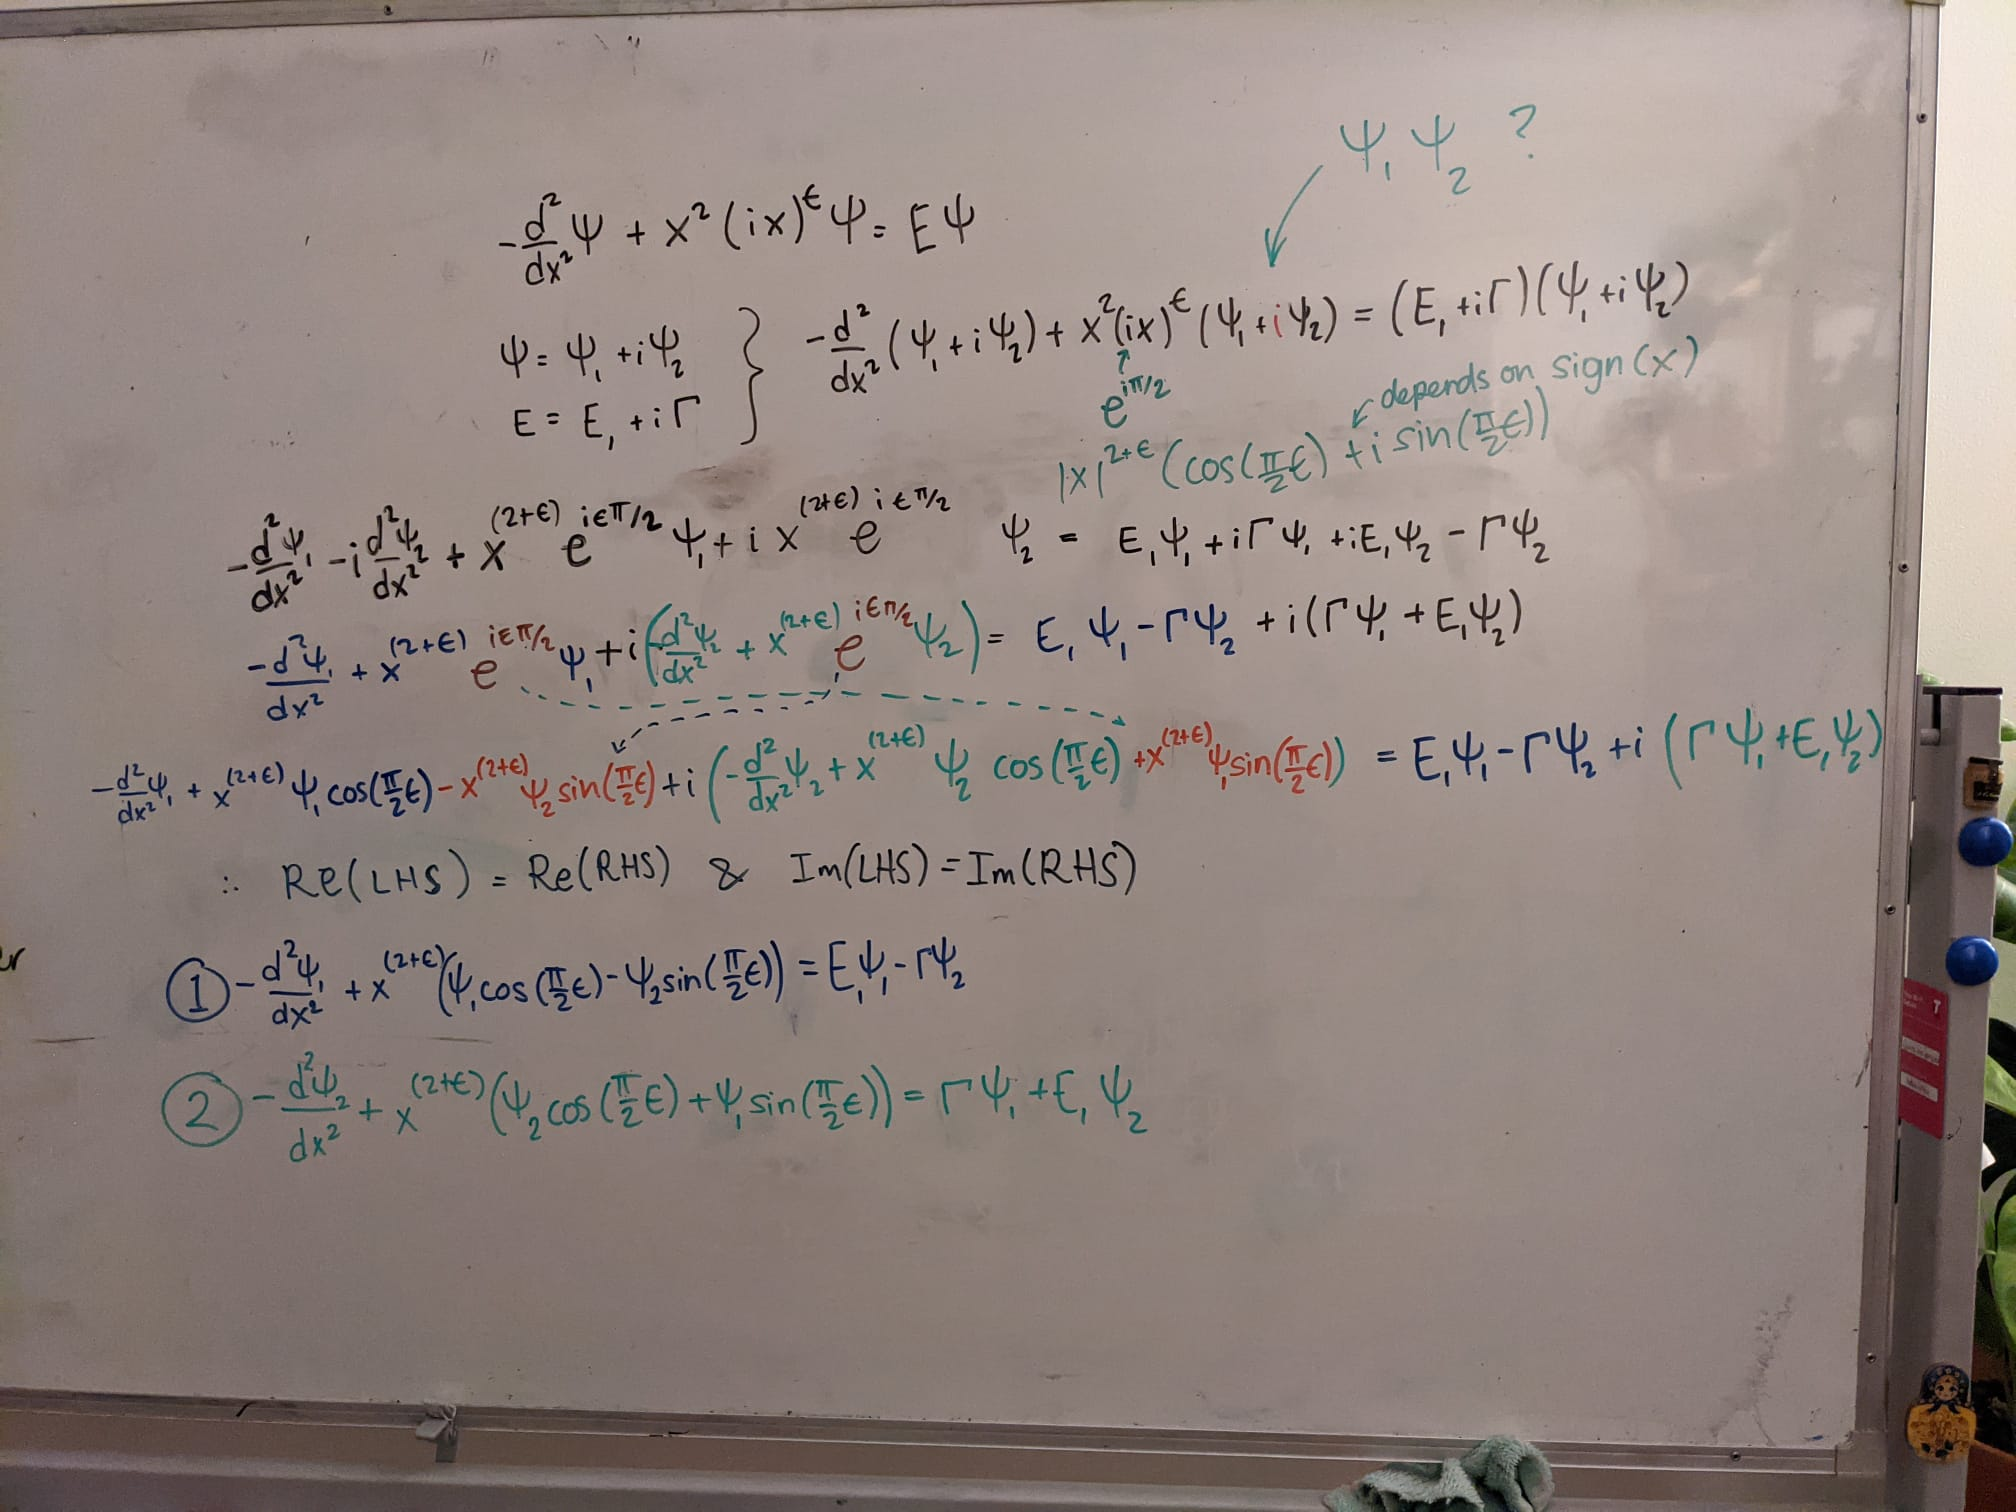 Ψ₁ Ψ₂ ?
-d²/dx² Ψ + x² (ix)^ϵ Ψ = E Ψ
Ψ = Ψ₁ + iΨ₂
E = E₁ + iΓ
} -d²/dx² (Ψ₁ + iΨ₂) + x²(ix)^ϵ (Ψ₁ + iΨ₂) = (E₁ + iΓ)(Ψ₁ + iΨ₂)
↑
e^(iπ/2)
↙ depends on sign(x)
|x|^(2+ϵ) (cos(π/2 ϵ) + i sin(π/2 ϵ))
-d²Ψ₁/dx² - i d²Ψ₂/dx² + x^(2+ϵ) e^(iϵπ/2) Ψ₁ + i x^(2+ϵ) e^(iϵπ/2) Ψ₂ = E₁Ψ₁ + iΓΨ₁ + iE₁Ψ₂ - ΓΨ₂
-d²Ψ₁/dx² + x^(2+ϵ) e^(iϵπ/2) Ψ₁ + i(-d²Ψ₂/dx² + x^(2+ϵ) e^(iϵπ/2) Ψ₂) = E₁Ψ₁ - ΓΨ₂ + i(ΓΨ₁ + E₁Ψ₂)
-d²/dx² Ψ₁ + x^(2+ϵ) Ψ₁ cos(π/2 ϵ) - x^(2+ϵ) Ψ₂ sin(π/2 ϵ) + i(-d²/dx² Ψ₂ + x^(2+ϵ) Ψ₂ cos(π/2 ϵ) + x^(2+ϵ) Ψ₁ sin(π/2 ϵ)) = E₁Ψ₁ - ΓΨ₂ + i(ΓΨ₁ + E₁Ψ₂)
∴ Re(LHS) = Re(RHS) & Im(LHS) = Im(RHS)
① -d²Ψ₁/dx² + x^(2+ϵ) (Ψ₁ cos(π/2 ϵ) - Ψ₂ sin(π/2 ϵ)) = E₁Ψ₁ - ΓΨ₂
② -d²Ψ₂/dx² + x^(2+ϵ) (Ψ₂ cos(π/2 ϵ) + Ψ₁ sin(π/2 ϵ)) = ΓΨ₁ + E₁Ψ₂